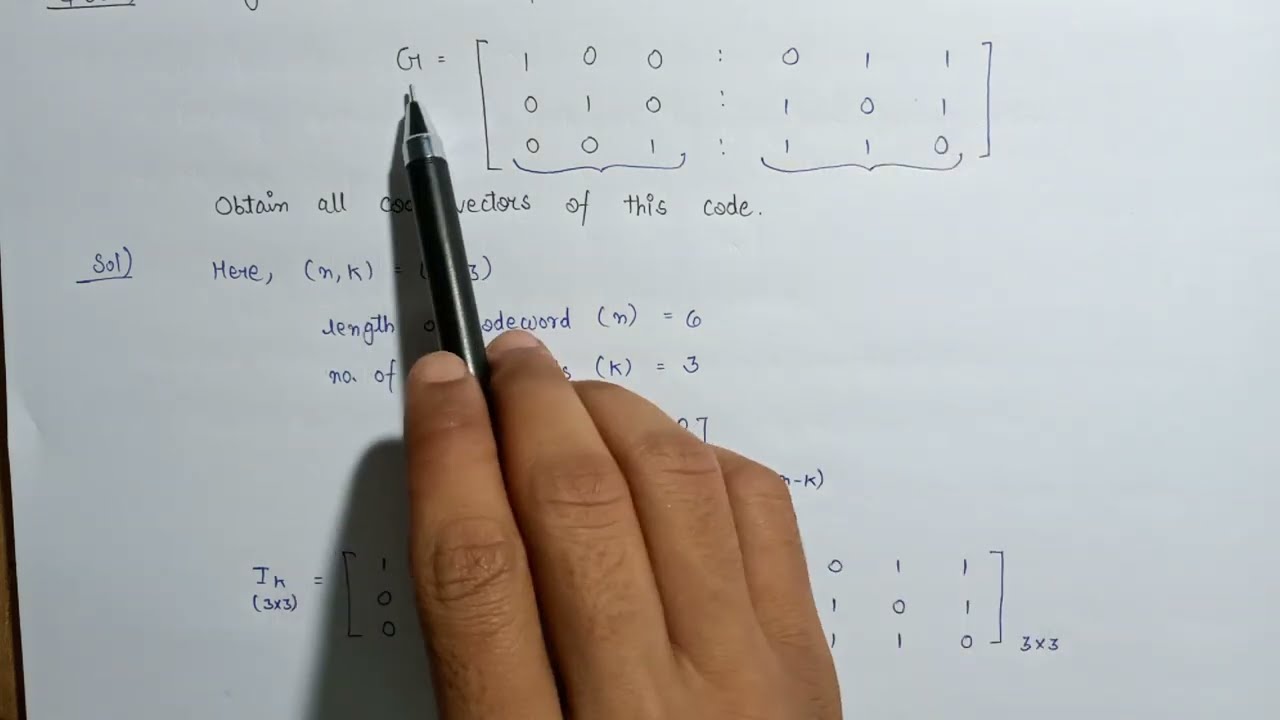 G = [ 1 0 0 : 0 1 1 ]
0 1 0 : 1 0 1
0 0 1 : 1 1 0
Obtain all vectors of this code.
Sol) Here, (n, k) = 3)
length codeword (n) = 6
no. of (k) = 3
n-k)
Ik = [ 1 0 1 1 ]
(3x3) 0 1 0 1
0 1 1 0 3x3